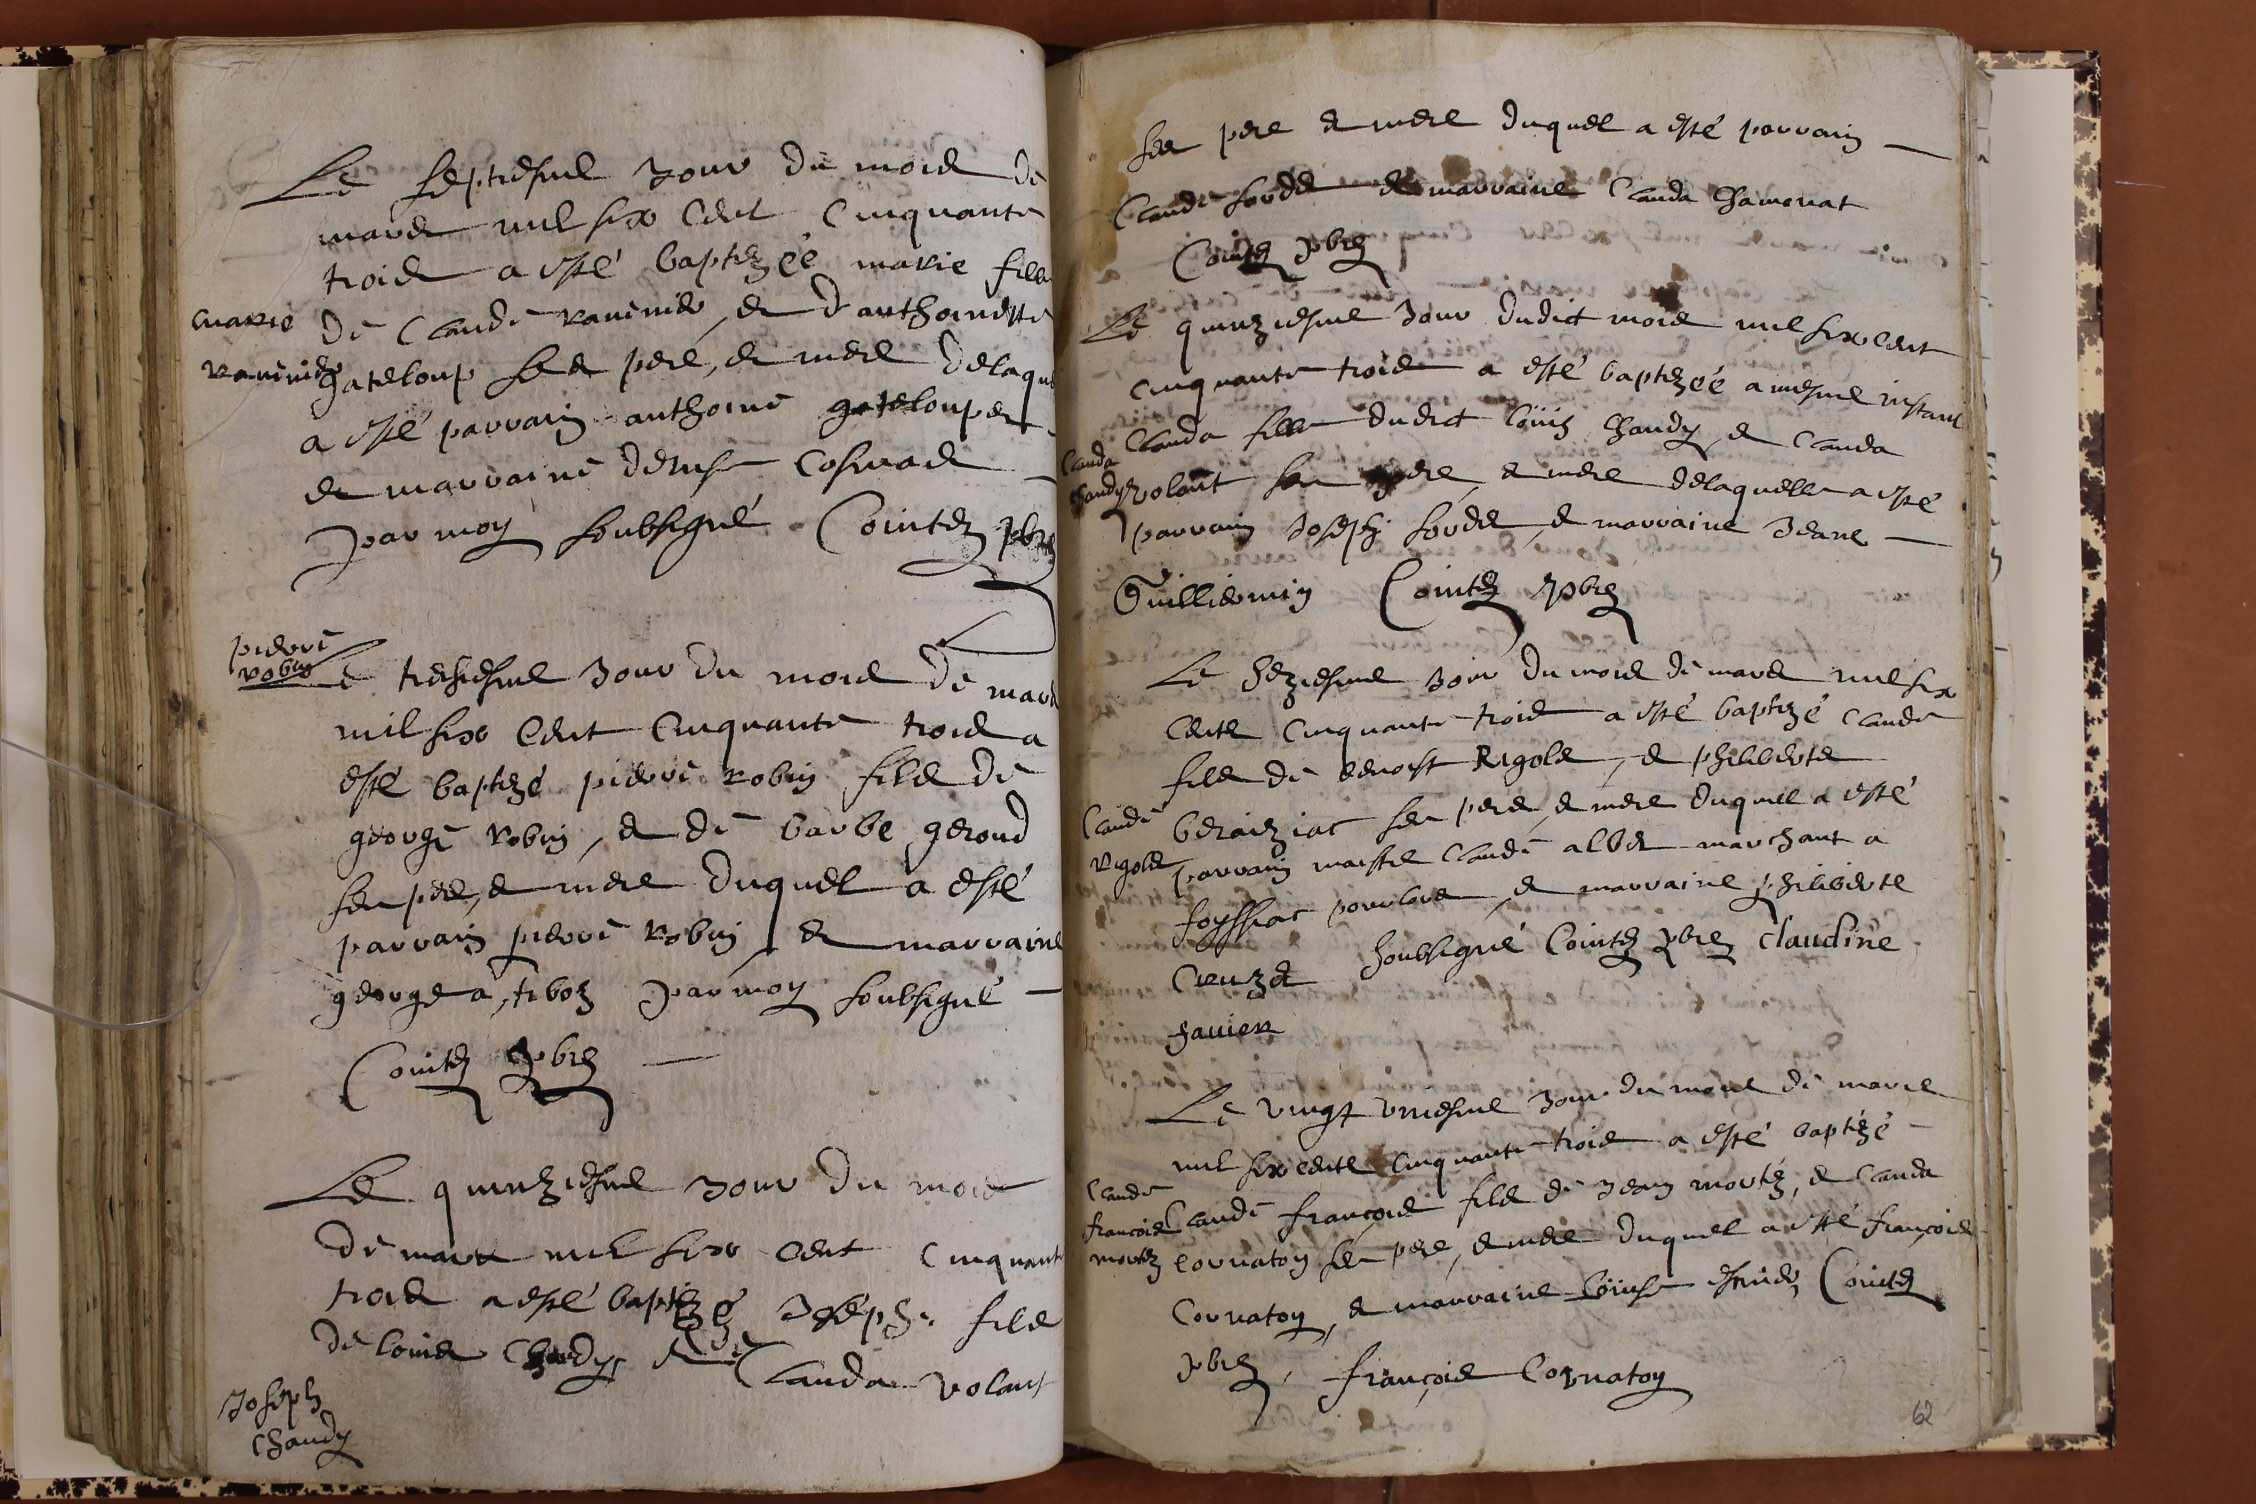 Le septiesme Jour du mois de
mars mil six cent Cinquante
trois a esté baptezéé marie fille
marie
ravenier
de Claude ravenier, et d'anthoinette
gateloup ses pere, et mere delaque
a esté parrain anthoine gateloup et
et marraine denise
par moy soubsigné Cointez pbre
pierre
robin
Le tresiesme Jour du mois de mars
mil six Cent Cinquante trois a
esté baptezé pierre robin fils de
george Robin, et de barbe geroud
ses pere, et mere duquel a esté
parrain pierre Robin, et marraine
george a, tiboz par moy soubsigné
Cointez pbre
Le quinziesme Jour du mois
de mars mil six cent Cinquante
trois a esté baptezé Joseph fils
de louis Chandy et de Clauda volant
Joseph
Chandy
ses pere et mere duquel a esté parrain
Claude sordes et marraine Clauda Chamonat
Cointez pbre
Le quinziesme Jour dudict mois mil six cent
cinquante trois a esté baptezéé a mesme instant
Clauda fille dudict loüis Chandy, et Clauda
Clauda
Chandy
volant ses pere, et mere delaquelle a esté
parrain Joseph sordes, et marraine Jeane
Guilliermin Cointez pbre
Le seziesme Jour du mois de mars mil six
cents Cinquante trois a esté baptezé Claude
fils de benoist Rigole, et philiberte
Claude
Rigole
beraiziat ses pere, et mere duquel a esté
parrain maistre Claude albet marchant a
foyssiat, et marraine philiberte
Creuzet soubsigné Cointez pbre claudine
Le vingt uniesme Jour du mois de mars
mil six cents Cinquante trois a esté baptézé
Claude
françois
mortez
Claude françois fils de Jean mortéz, et Clauda
cornaton ses pere, et mere duquel a esté françois
Cornaton, et marraine loüise Cointez
pbre, françois Cornaton
62